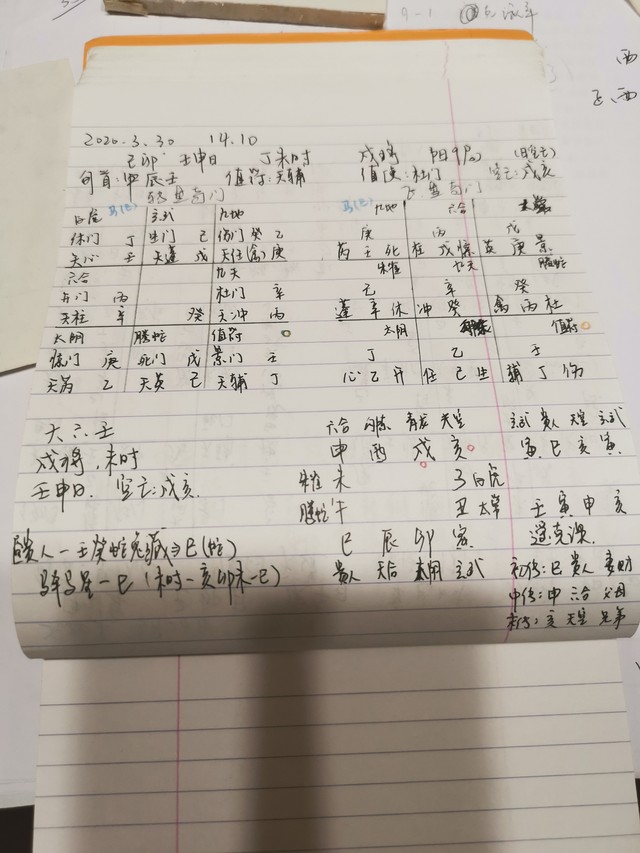 2020.3.30 14.10
己卯 壬申日 丁未时 戌将 阳9局 (日空亡)
旬首:甲辰壬 值符:天辅 值使:杜门 空亡:戌亥
转盘奇门 飞盘奇门
白虎 马(巳) 玄武 九地 马(巳) 九地 六合
休门 丁 生门 己 伤门 癸 乙 庚 丙 戊
天心 壬 天蓬 戊 天任(禽) 庚 芮 壬 死 柱 戊 惊 英 庚 景
六合 九天 朱雀 九天 腾蛇
开门 丙 杜门 辛 己 辛 癸
天柱 辛 癸 天冲 丙 蓬 辛 休 冲 癸 禽 丙 杜
太阴 腾蛇 值符 太阴 值符
惊门 庚 死门 戊 景门 壬 丁 乙 壬
天芮 乙 天英 己 天辅 丁 心 乙 开 任 己 生 辅 丁 伤
大六壬 六合 勾陈 青龙 天空 玄武 贵人 天空 玄武
戌将,未时 申 酉 戌 亥 寅 巳 亥 寅
壬申日. 空亡:戌亥. 朱雀 未 子 白虎
腾蛇 午 丑 太常 壬 寅 申 亥
贵人-壬癸蛇兔藏⇒巳(蛇) 巳 辰 卯 寅 遥克课.
驿马星-巳(未时-亥卯未-巳) 贵人 天后 太阴 玄武 初传:巳 贵人 妻财
中传:申 六合 父母
末传:亥 天空 兄弟